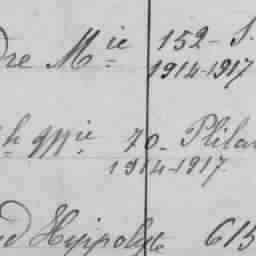 dre Mie 152 - S.
1914-1917
h 9ie 70 - Phila
1914-1917
d Hippolyte 615